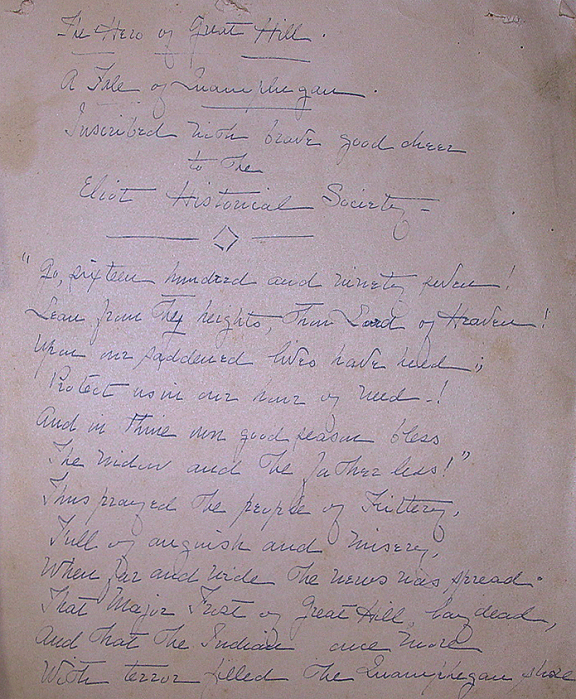 The Hero of Great Hill.
A Tale of Quamphegan.
Inscribed with brave good cheer
to the
Eliot Historical Society -
"Go, sixteen hundred and ninety seven!
Lean from Thy heights, Thou Lord of Heaven!
Upon our saddened lives have heed;
Protect us in our hour of need -!
And in Thine own good season bless
The widow and the fatherless!"
Thus prayed the people of Kittery,
Full of anguish and misery,
When far and wide the news was spread
That Major Frost of Great Hill lay dead,
And that the Indian once more
With terror filled the Quamphegan shore